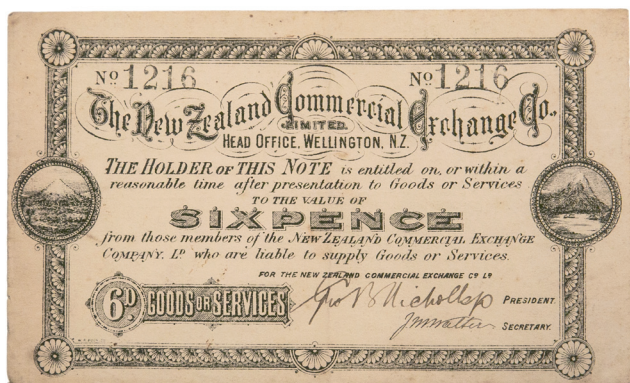 No 1216 No 1216
The New Zealand Commercial Exchange Co.,
LIMITED.
HEAD OFFICE, WELLINGTON, N.Z.
THE HOLDER OF THIS NOTE is entitled on, or within a
reasonable time after presentation to Goods or Services
TO THE VALUE OF
SIXPENCE
from those members of the NEW ZEALAND COMMERCIAL EXCHANGE
COMPANY, LD who are liable to supply Goods or Services.
FOR THE NEW ZEALAND COMMERCIAL EXCHANGE CO LD
6D. GOODS OR SERVICES
PRESIDENT.
SECRETARY.